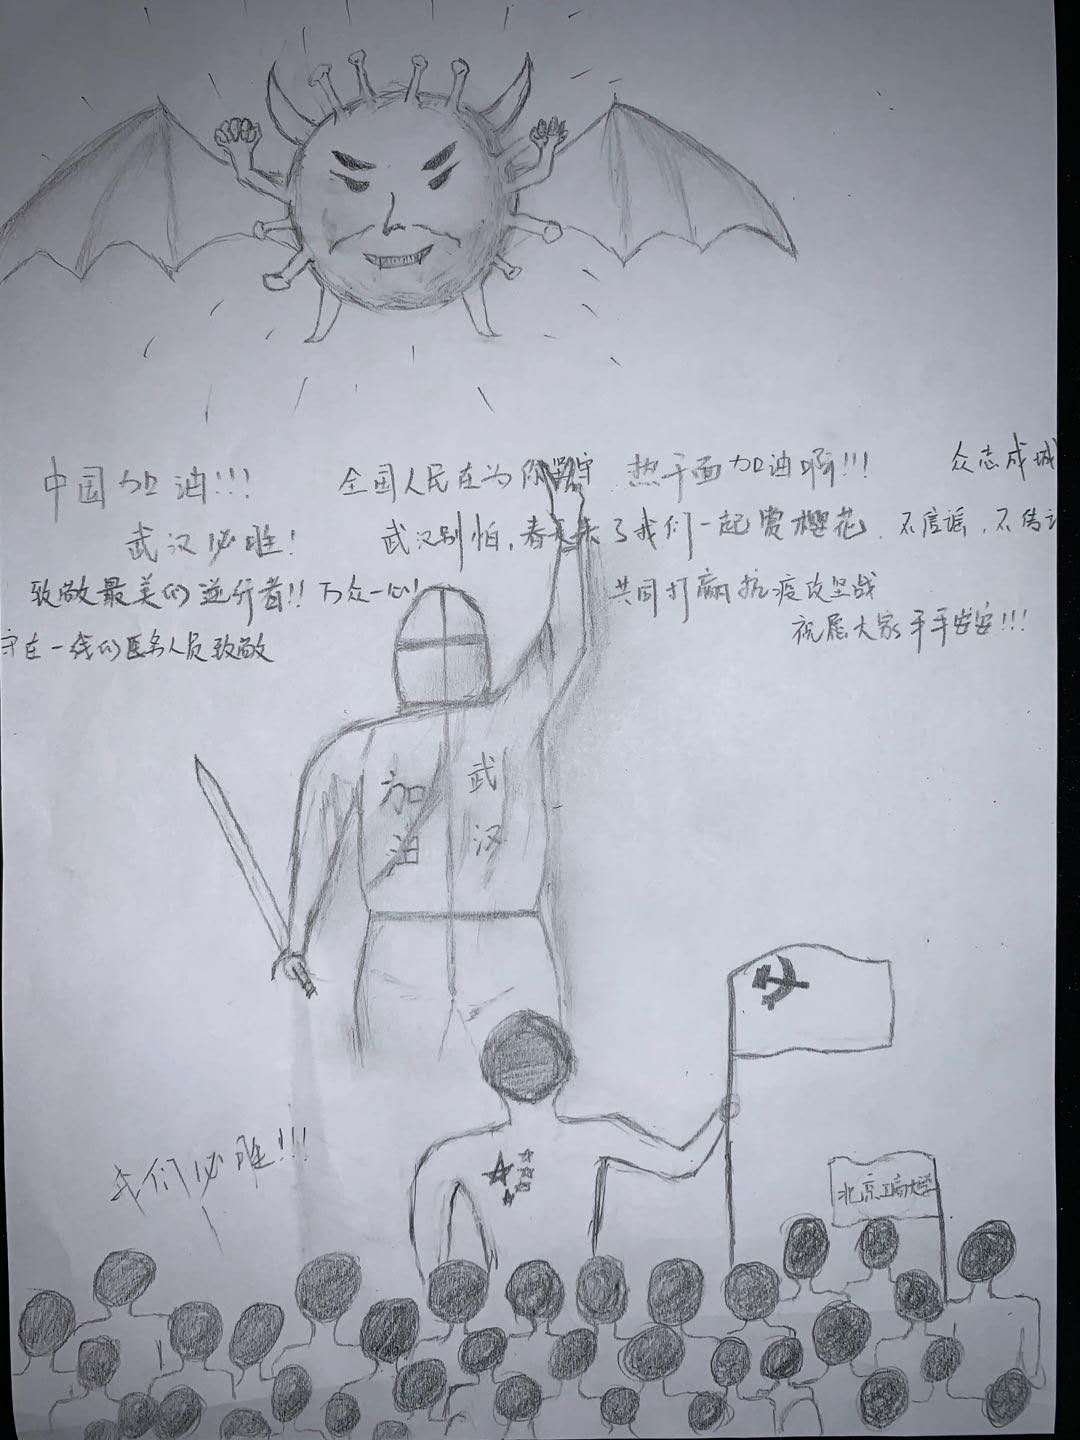 中国加油!!!
全国人民在为你
热干面加油啊!!!
众志成城
武汉必胜!
武汉别怕,春天来了我们一起赏樱花.
不信谣,不传
致敬最美的逆行者!!
万众一心!
共同打赢抗疫攻坚战
守在一线的医务人员致敬
祝愿大家平平安安!!!
武汉
加油
北京工商大学
我们必胜!!!